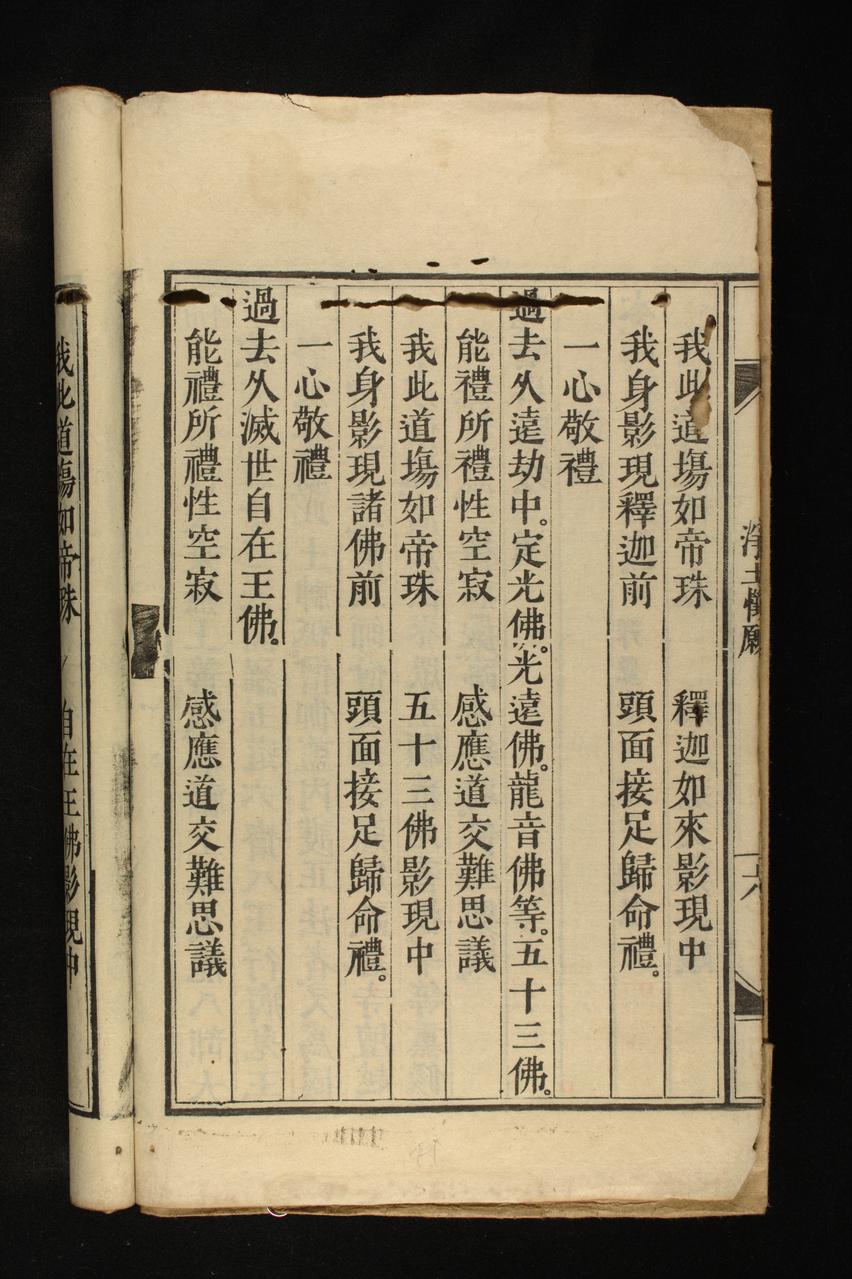 淨土懺願
六
我此道塲如帝珠　釋迦如來影現中
我身影現釋迦前　頭面接足歸命禮。
一心敬禮
過去久遠劫中。定光佛。光遠佛。龍音佛等。五十三佛。
能禮所禮性空寂　感應道交難思議
我此道塲如帝珠　五十三佛影現中
我身影現諸佛前　頭面接足歸命禮。
一心敬禮
過去久滅世自在王佛。
能禮所禮性空寂　感應道交難思議
我此道塲如帝珠　自在王佛影現中